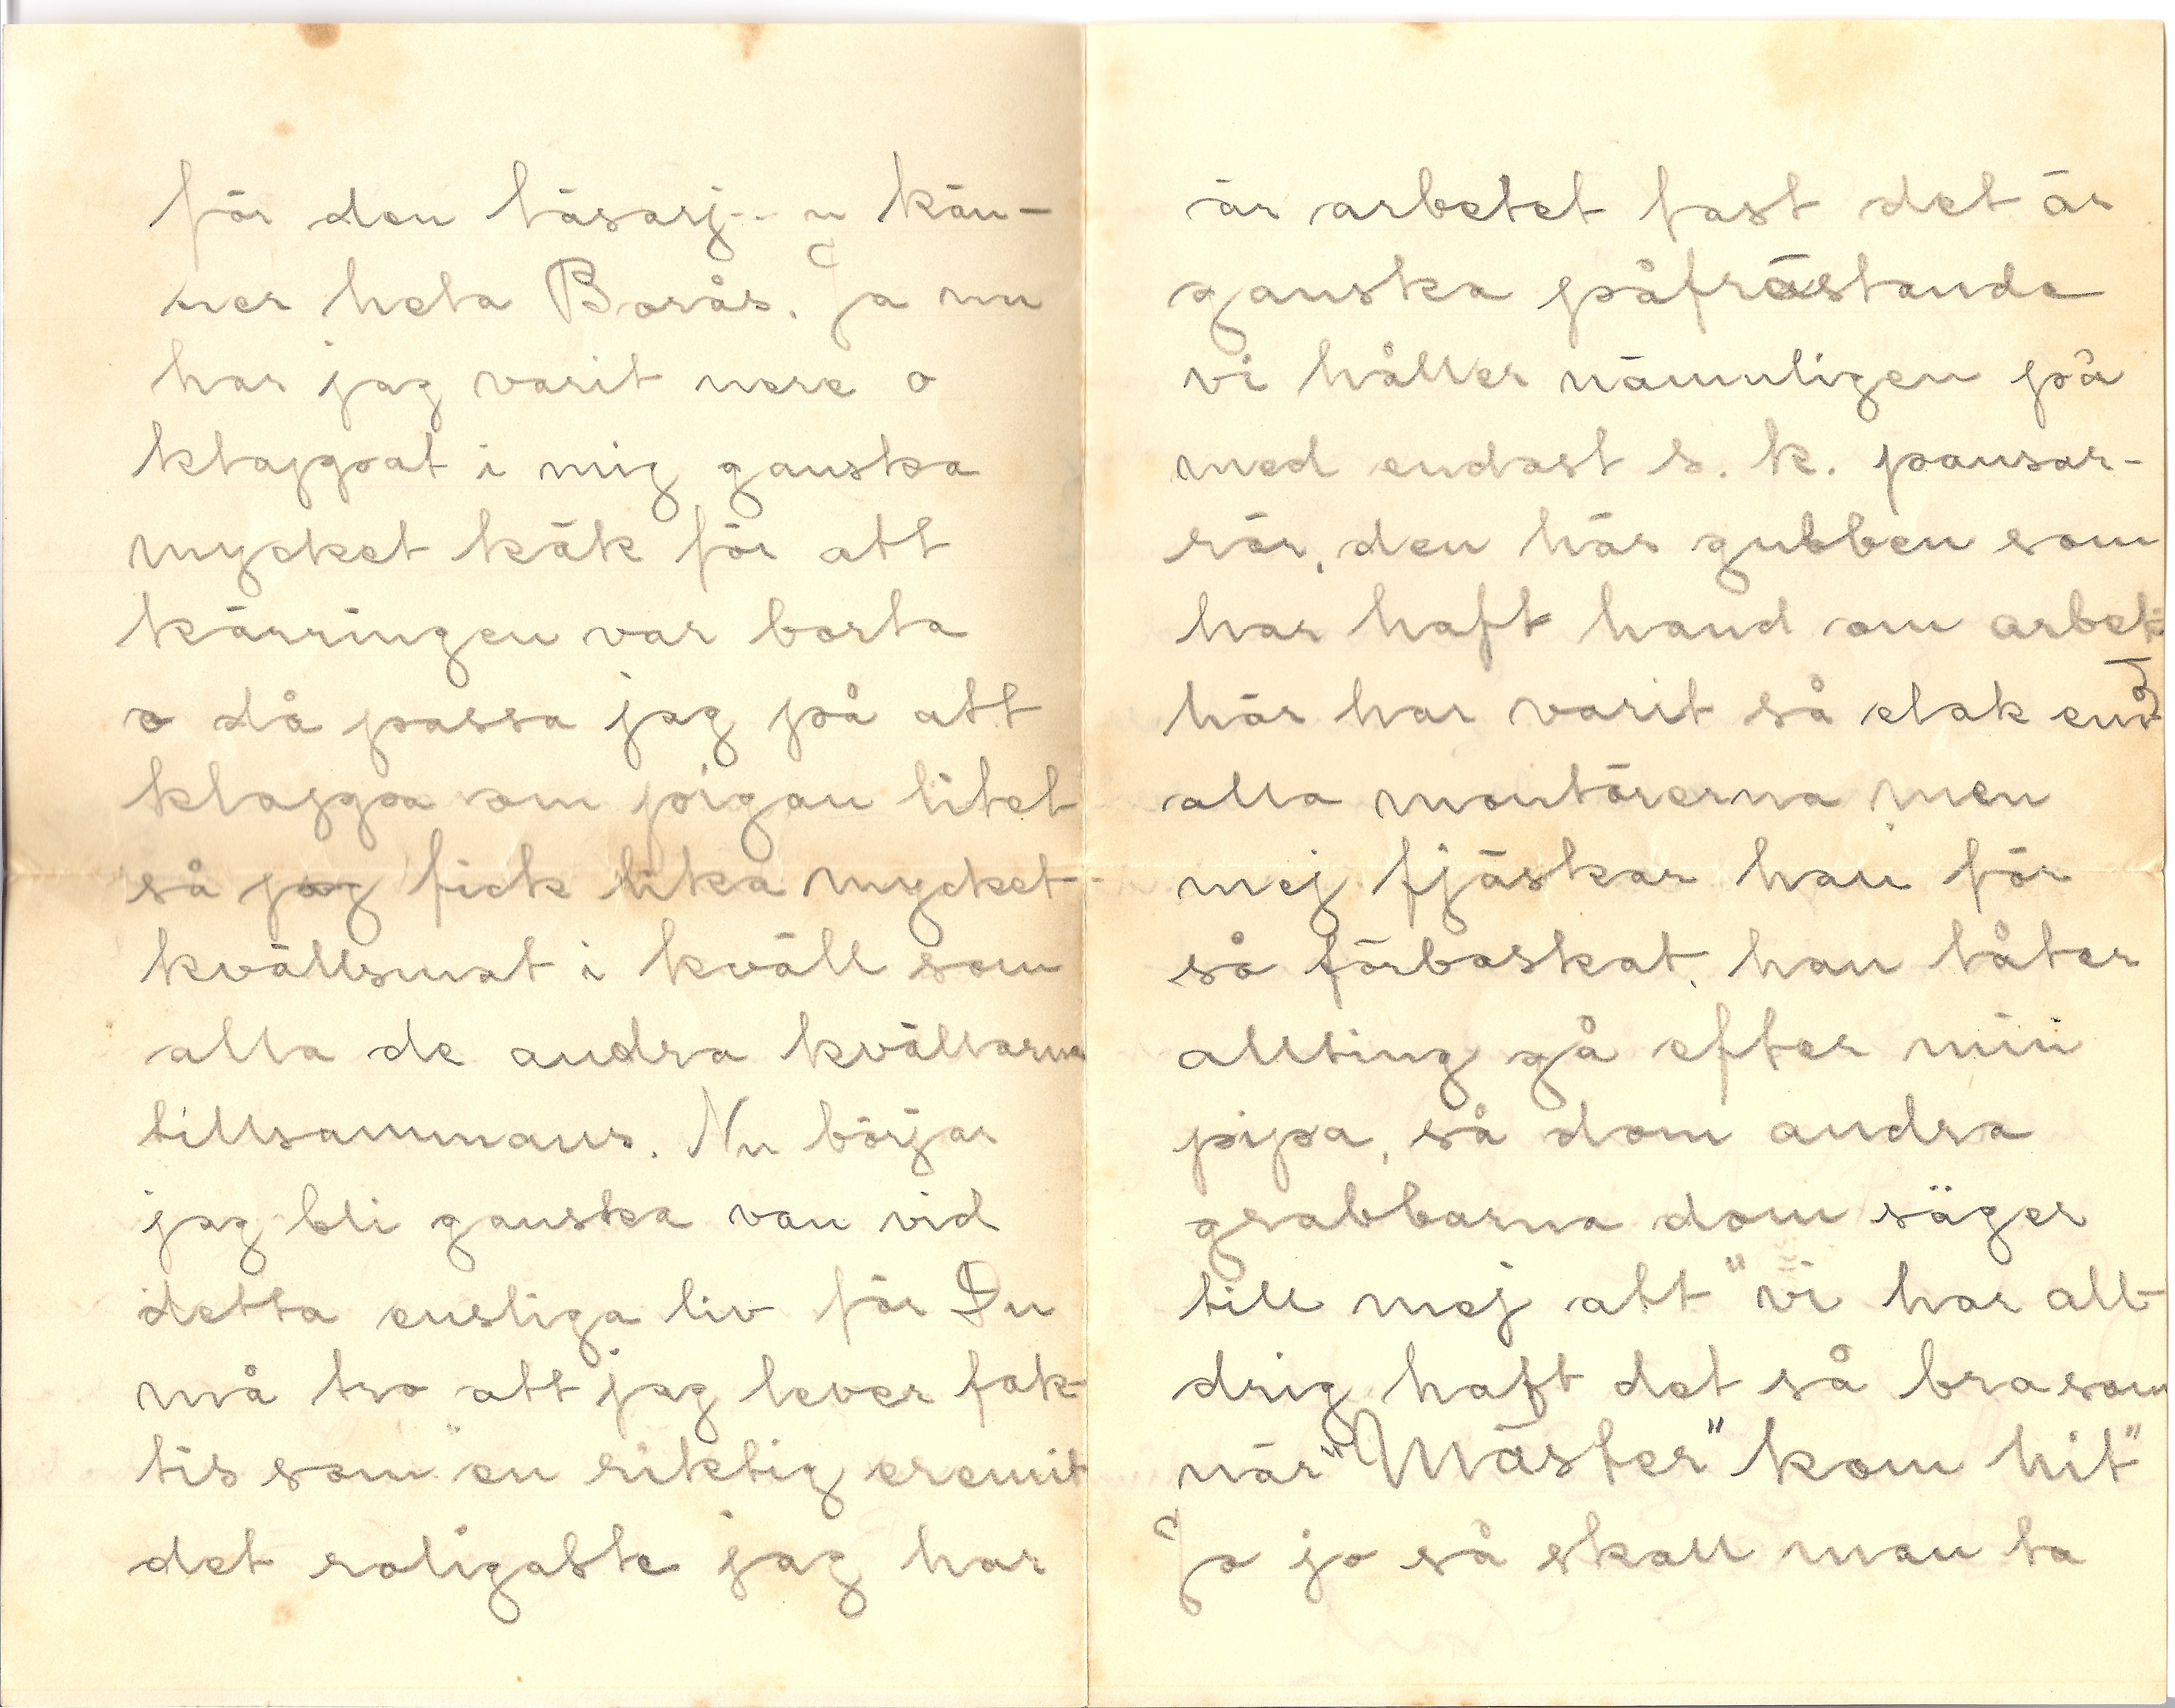 för den läsarj-- n kän-
ner hela Borås. Ja nu
har jag varit nere o
klappat i mig ganska
mycket käk för att
kärringen var borta
o då passa jag på att
klappa om pigan litet
så jag fick lika mycket
kvällsmat i kväll som
alla de andra kvällarna
tillsammans. Nu börjar
jag bli ganska van vid
detta ensliga liv för Du
må tro att jag lever fak-
tis som "en riktig eremit
det roligaste jag har
är arbetet fast det är
ganska påfrästande
vi håller nämnligen på
med endast s. k. pansar-
rör, den här gubben som
har haft hand om arbet
här har varit så elak emot
alla montörerna men
mej fjäskar han för
så förbaskat, han låter
allting gå efter min
pipa, så dom andra
grabbarna dom säger
till mej att "vi har all-
drig haft det så bra som
när "Mäster" kom hit"
Jo jo så skall man ta